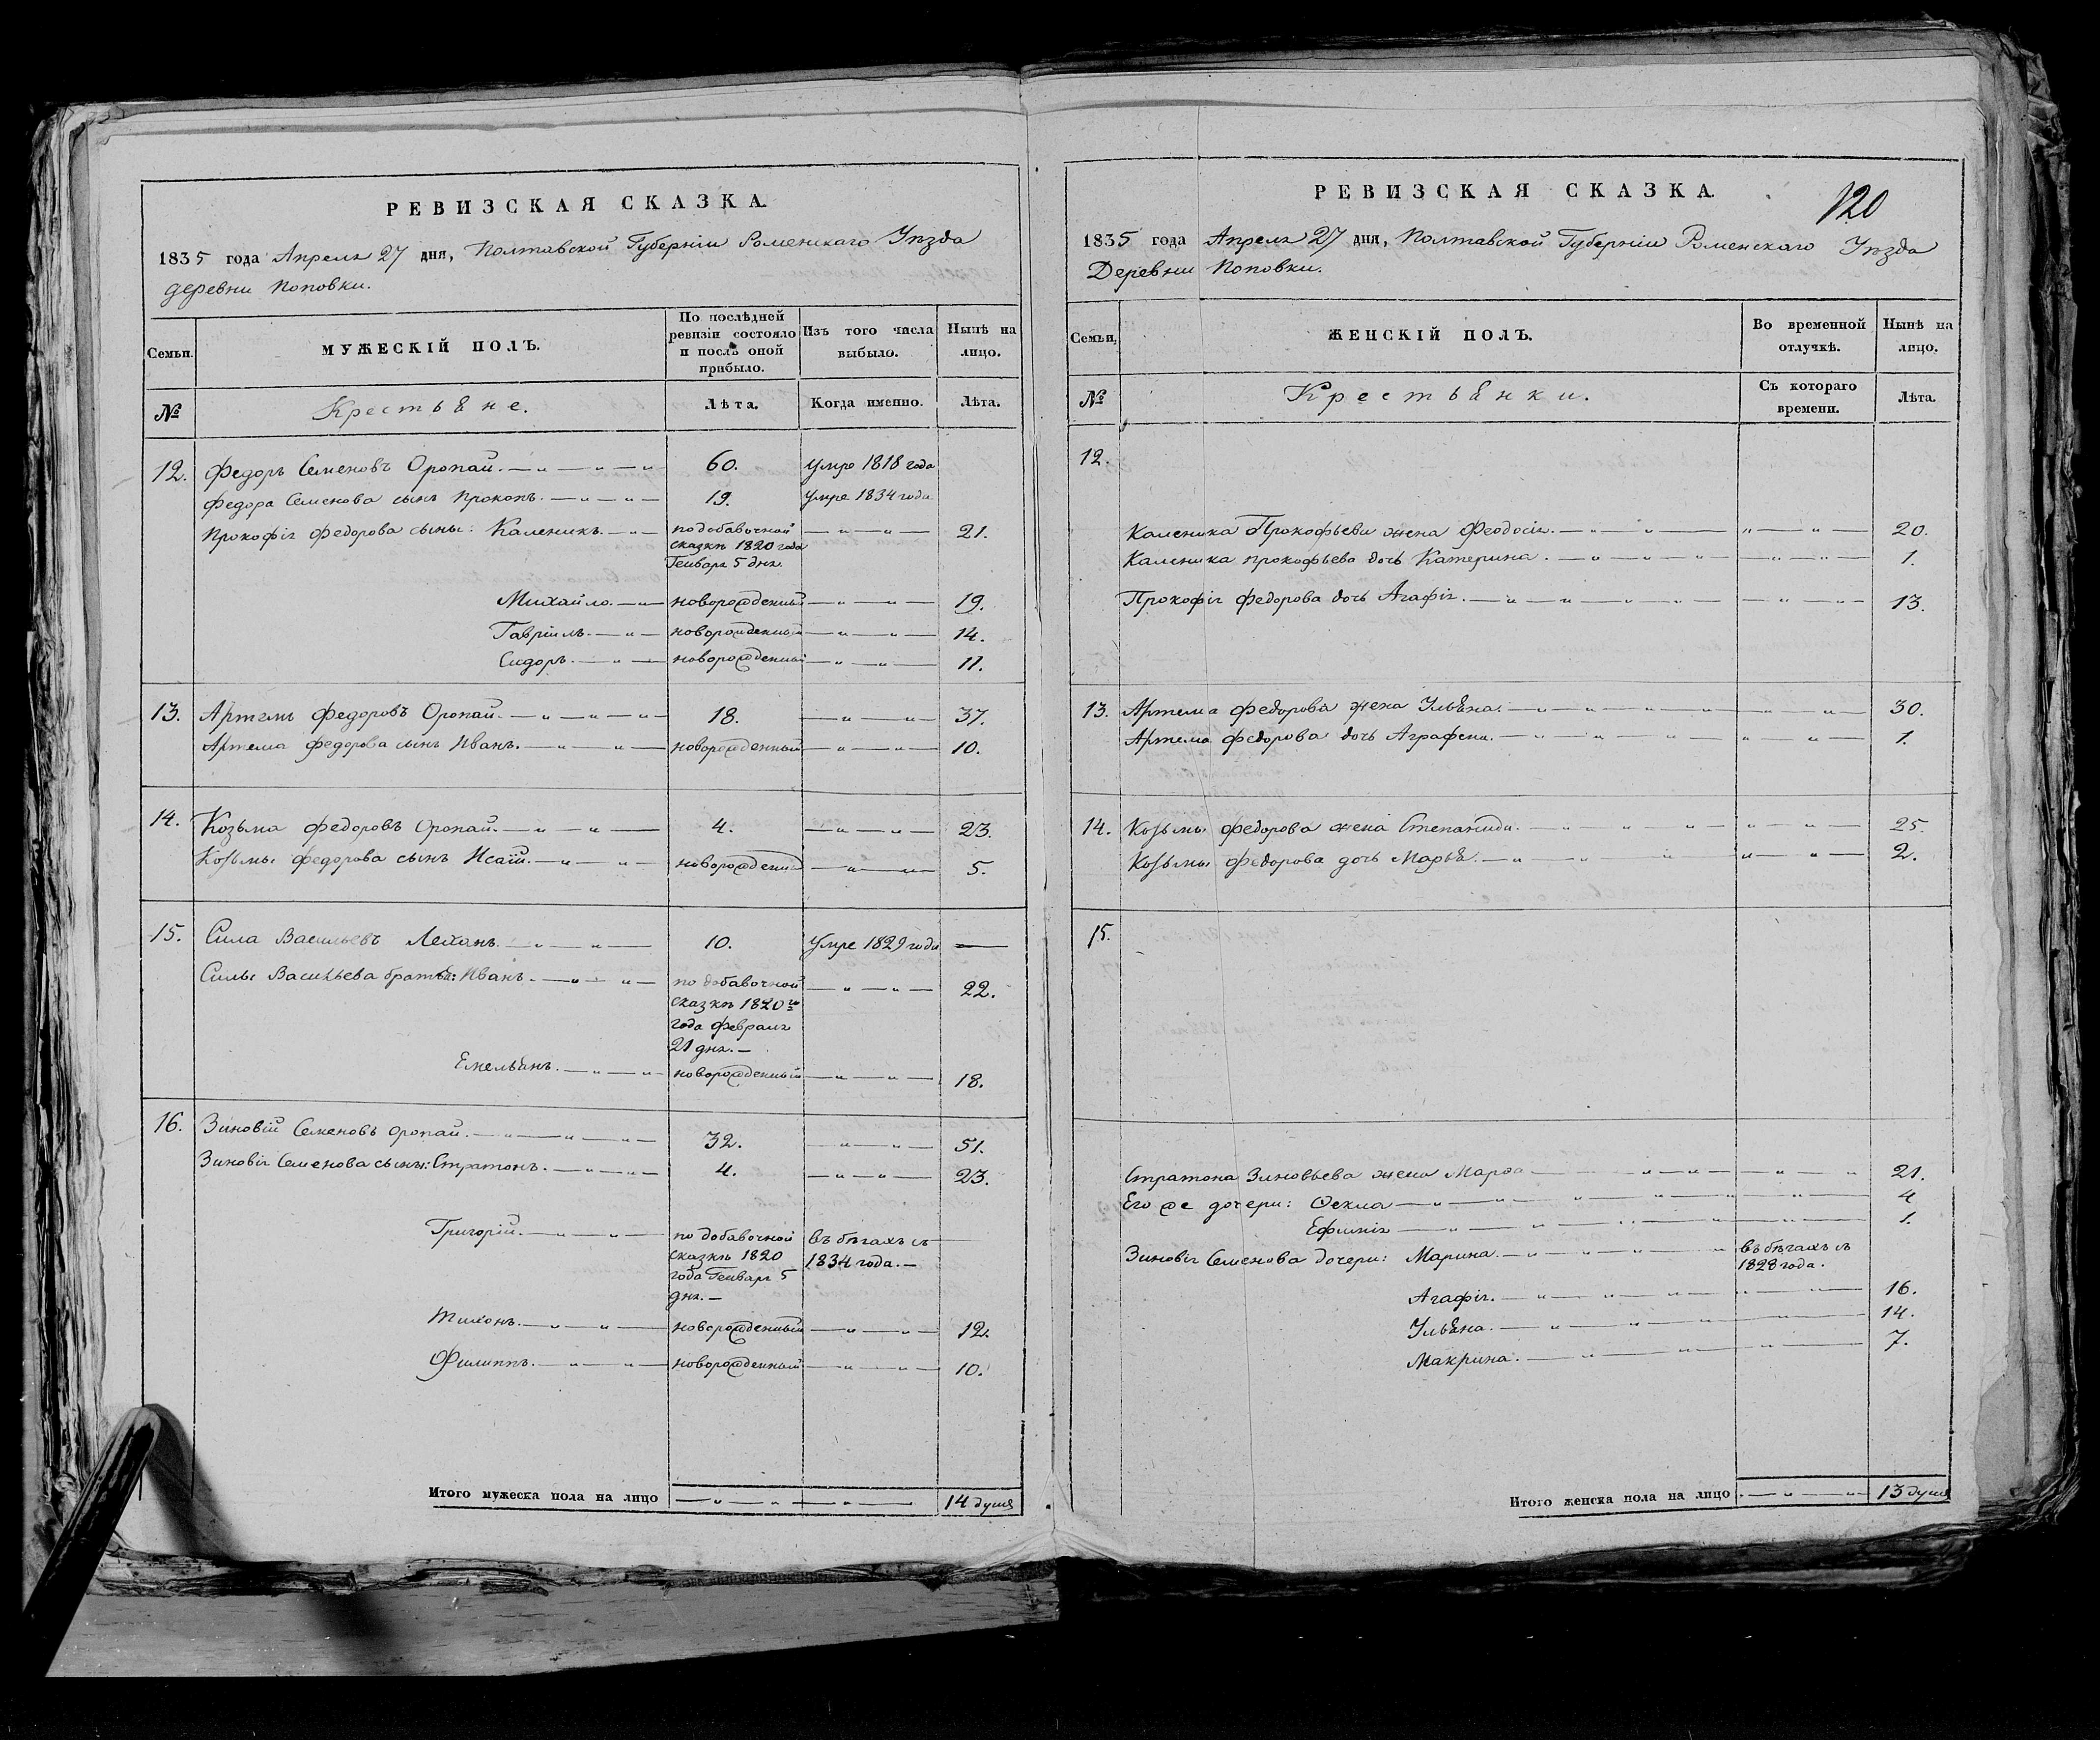 РЕВИЗСКАЯ СКАЗКА.
1835 года Апреля 27 дня, Полтавской Губерніи Роменскаго Уѣзда
деревни Поповки.
Семьи.
МУЖЕСКІЙ ПОЛЪ.
По послѣдней
ревизіи состояло
и послѣ оной
прибыло.
Изъ того числа
выбыло.
Нынѣ на
лицо.
№
Крестьяне.
Лѣта.
Когда именно.
Лѣта.
12. Федоръ Семеновъ Оропай. 60. умре 1818 года
Федора Семенова сынъ Прокопъ. 19. умре 1834 года
Прокофія Федорова сыны: Каленикъ. по добавочной 21.
сказкѣ 1820 года
Генваря 5 дня.
Михайло. новорожденный 19.
Гавріилъ. новорожденный 14.
Сидоръ. новорожденный 11.
13. Артемъ Федоровъ Оропай. 18. 37.
Артема Федорова сынъ Иванъ. новорожденный 10.
14. Козьма Федоровъ Оропай. 4. 23.
Козьмы Федорова сынъ Исаій. новорожденный 5.
15. Сила Васильевъ 10. умре 1829 года
Силы Васильева братья: Иванъ. по добавочной 22.
сказкѣ 1820го
года февраля
21 дня.
Емельянъ. новорожденный 18.
16. Зиновій Семеновъ Оропай. 32. 51.
Зиновія Семенова сыны: Стратонъ. 4. 23.
Григорій. по добавочной въ бѣгахъ съ
сказкѣ 1820 1834 года.
года Генваря 5
дня.
Тихонъ. новорожденный 12.
Филиппъ. новорожденный 10.
Итого мужеска пола на лицо 14 душъ
РЕВИЗСКАЯ СКАЗКА.
120
1835 года Апреля 27 дня, Полтавской Губерніи Роменскаго Уѣзда
Деревни Поповки.
Семьи.
ЖЕНСКІЙ ПОЛЪ.
Во временной
отлучкѣ.
Нынѣ на
лицо.
№
Крестьянки.
Съ котораго
времени.
Лѣта.
12.
Каленика Прокофьева жена Феодосія. 20.
Каленика Прокофьева дочь Катерина. 1.
Прокофія Федорова дочь Агафія. 13.
13. Артема Федорова жена Ульяна. 30.
Артема Федорова дочь Аграфена. 1.
14. Козьмы Федорова жена Степанида. 25.
Козьмы Федорова дочь Марья. 2.
15.
Стратона Зиновьева жена Марфа 21.
Его же дочери: Фекла 4
Ефимія 1.
Зиновія Семенова дочери: Марина. въ бѣгахъ съ
1828 года.
Агафія. 16.
Ульяна. 14.
Макрина. 7.
Итого женска пола на лицо 13 душъ